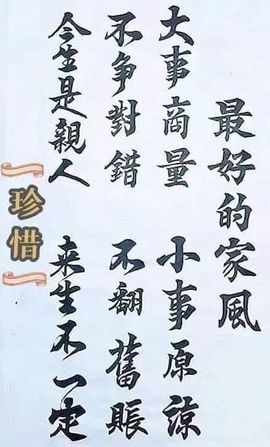 最好的家風
大事商量 小事原諒
不争對錯 不翻舊賬
今生是親人 来生不一定
珍惜